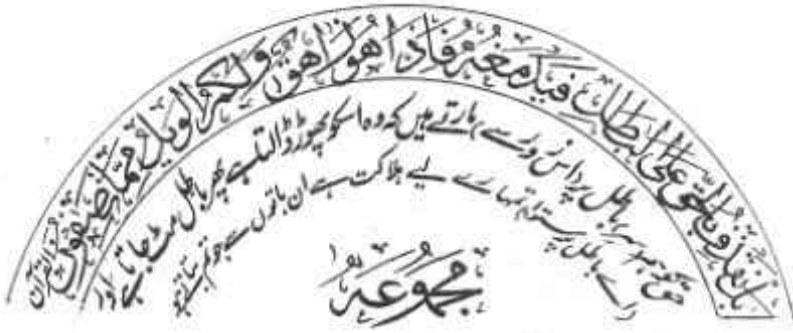 بل نقذف بالحق على الباطل فيدمغه فاذا هو زاهق ولكم الويل مما تصفون القرآن
حق کو باطل پر اس زور سے مارتے ہیں کہ وہ اسکو پھوڑ ڈالتا ہے پھر باطل مٹ جاتا ہے اور
اے باطل پرستو تمہارے لیے ہلاکت ہے ان باتوں سے جو تم بناتے ہو
مجموعہ